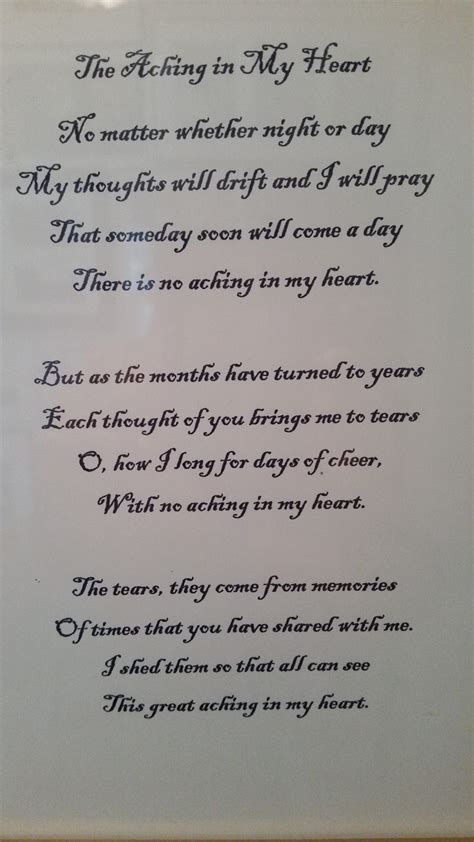 The Aching in My Heart
No matter whether night or day
My thoughts will drift and I will pray
That someday soon will come a day
There is no aching in my heart.
But as the months have turned to years
Each thought of you brings me to tears
O, how I long for days of cheer,
With no aching in my heart.
The tears, they come from memories
Of times that you have shared with me.
I shed them so that all can see
This great aching in my heart.